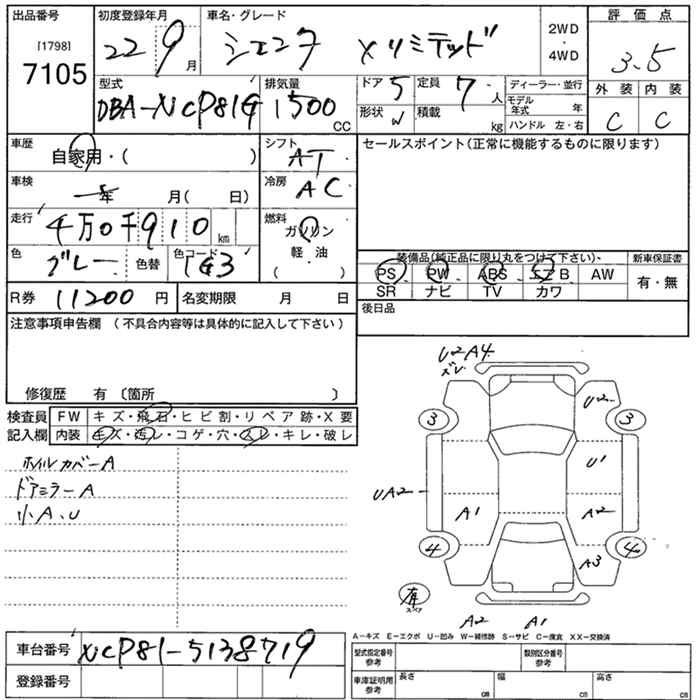 出品番号 初度登録年月 車名・グレード 2WD ・ 4WD 評価点
[1798] 7105 22 9月 シエンタ Xリミテッド 3.5
型式 排気量 ドア 5 定員 7人 ディーラー・並行 外装 内装
DBA-NCP81G 1500 CC 形状 W 積載 kg モデル年式 年 C C
ハンドル 左・右
車歴 自家用・( ) シフト AT セールスポイント(正常に機能するものに限ります)
車検 年 月( 日) 冷房 AC
走行 4万0千910km 燃料 ガソリン
軽・油
( )
色 グレー 色替 色コード 1G3 装備品(純正品に限り丸をつけて下さい)、 新車保証書
PS PW ABS エアB AW 有・無
SR ナビ TV カワ
R券 11200円 名変期限 月 日 後日品
注意事項申告欄(不具合内容等は具体的に記入して下さい)
修復歴 有〔箇所 〕
検査員 FW キズ・飛石・ヒビ割・リペア跡・X要
記入欄 内装 キズ・汚レ・コゲ・穴・スレ・キレ・破レ
ホイルカバーA
ドアミラーA
小A、U
U2A4
ズレ
U2
3 3
U1
UA2
A1 A2
4 A3 4
有 スペア
A2 A1
A-キズ E-エクボ U-凹み W-補修跡 S-サビ C-腐食 XX-交換済
車台番号 NCP81-5138719 型式指定番号 参考 類別区分番号 参考
登録番号 車庫証明用 参考 長さ cm 幅 cm 高さ cm